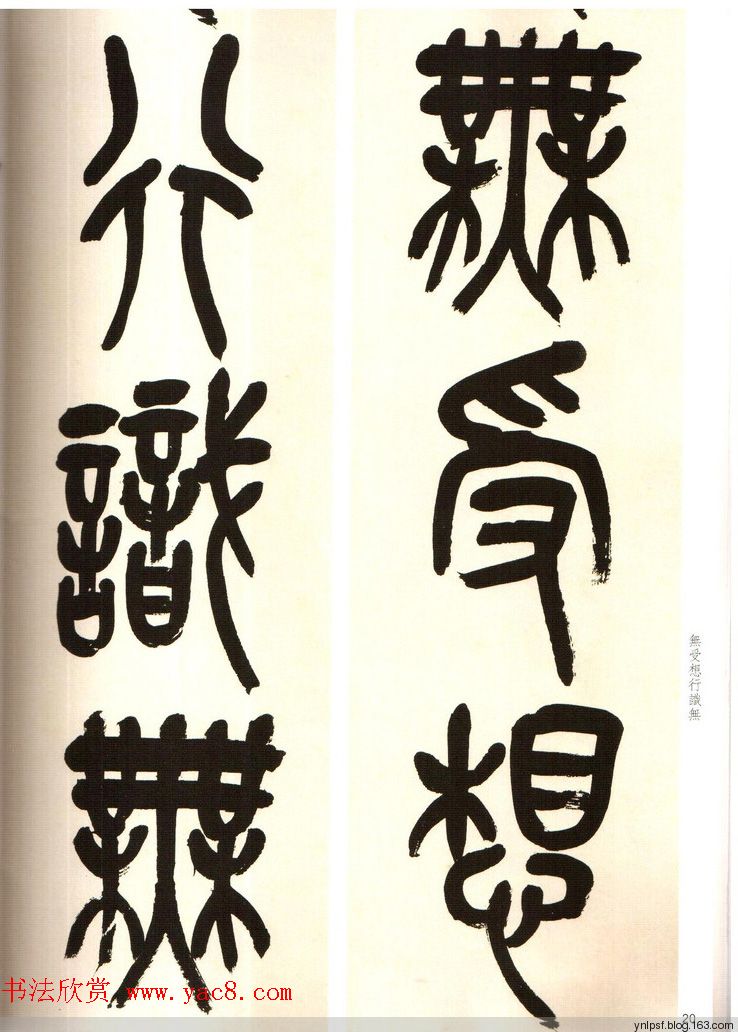 無受想
行識無
無受想行識無
20
书法欣赏 www.yac8.com
ynlpsf.blog.163.com